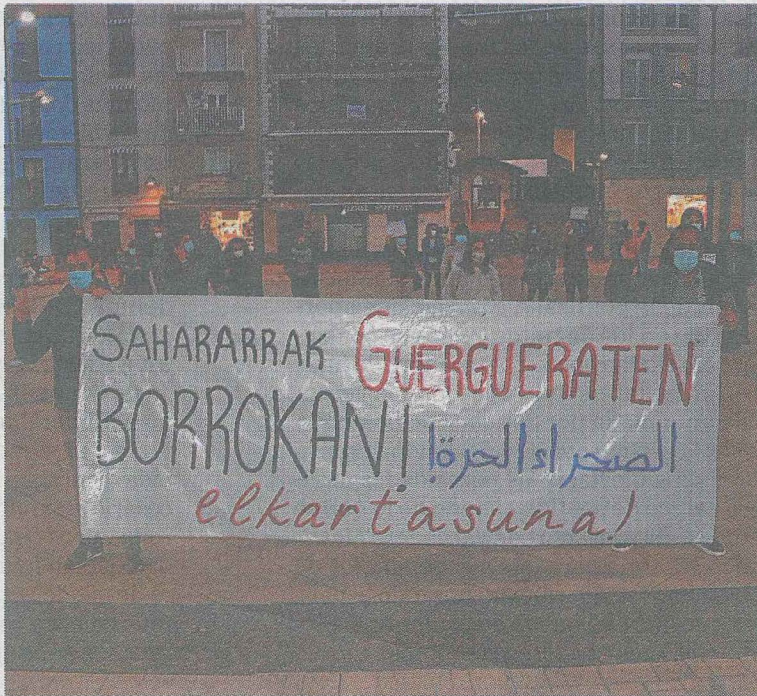 SAHARARRAK GUERGUERATEN
BORROKAN! الصحراء الحرة!
elkartasuna!